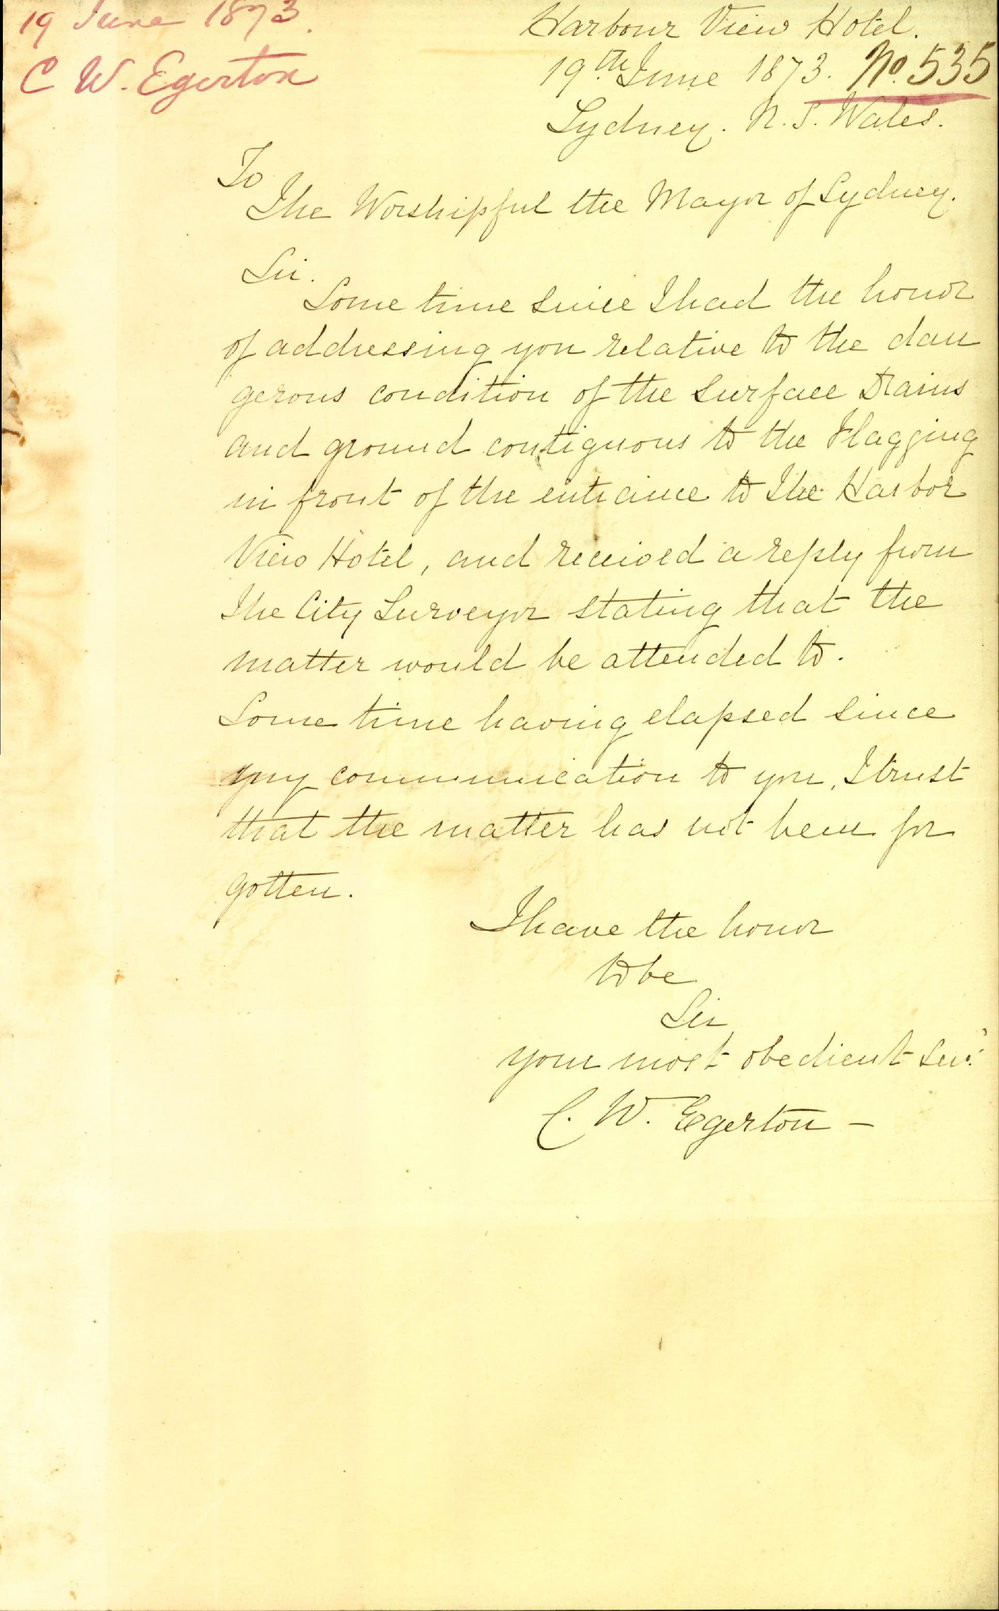 19 June 1873.
C W. Egerton
Harbour View Hotel.
19th June 1873. No. 535
Sydney. N. S. Wales.
To
The Worshipful the Mayor of Sydney.
Sir.
Some time since I had the honor
of addressing you relative to the dan
gerous condition of the Surface Drains
and ground contiguous to the Flagging
in front of the entrance to The Harbor
View Hotel, and received a reply from
The City Surveyor stating that the
matter would be attended to.
Some time having elapsed since
my communication to you, I trust
that the matter has not been for
gotten.
I have the honor
to be
Sir
your most obedient Serv:
C. W. Egerton —